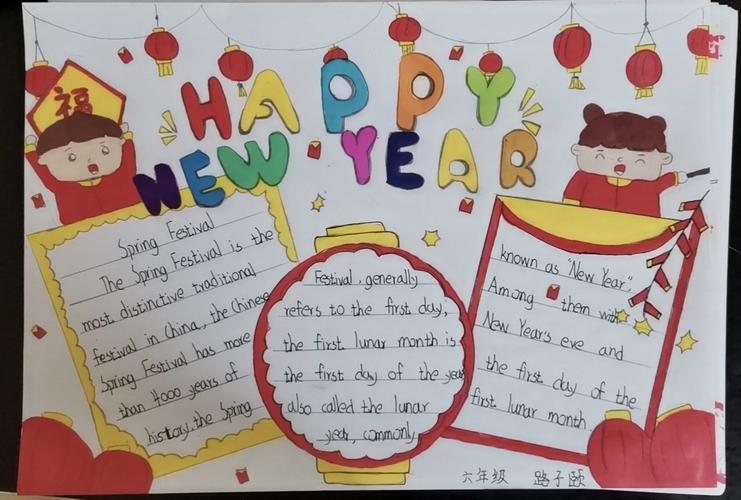 HAPPY
NEW YEAR
福
Spring Festival
The Spring Festival is the
most distinctive traditional
festival in China, the Chinese
Spring Festival has more
than 4000 years of
history.the Spring
Festival, generally
refers to the first day,
the first lunar month is
the first day of the year
also called the lunar
year, commonly
known as "New Year".
Among them with
New Year's eve and
the first day of the
first lunar month.
六年级 路子颐